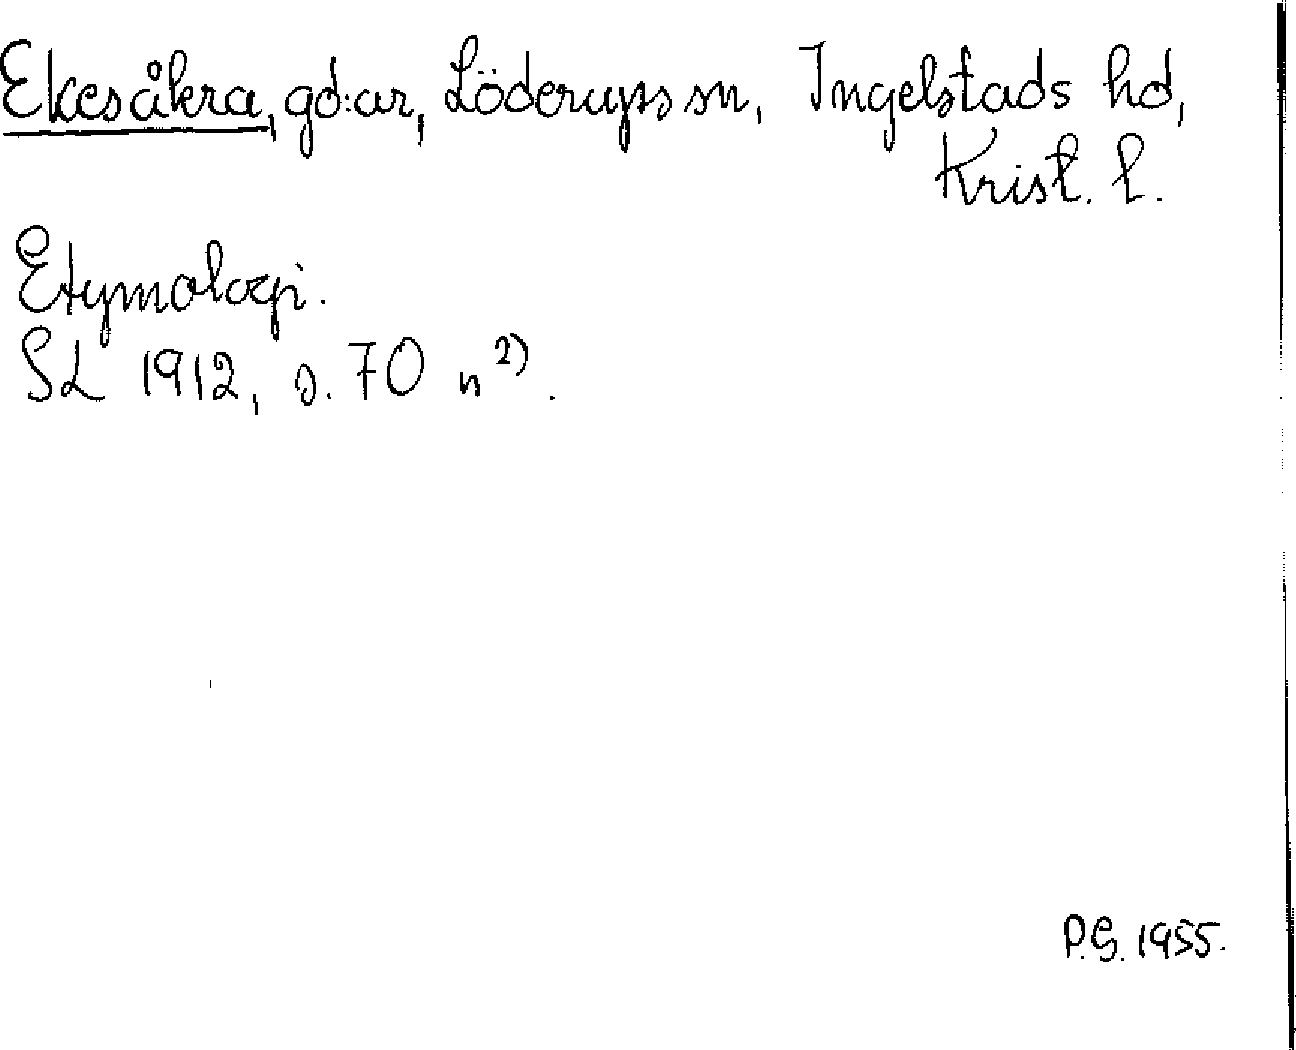 Ekesåkra, gd:ar, Löderups sn, Ingelstads hd,
Krist. l.
Etymologi.
SL 1912, s. 70 n 2).
P.G. 1955.